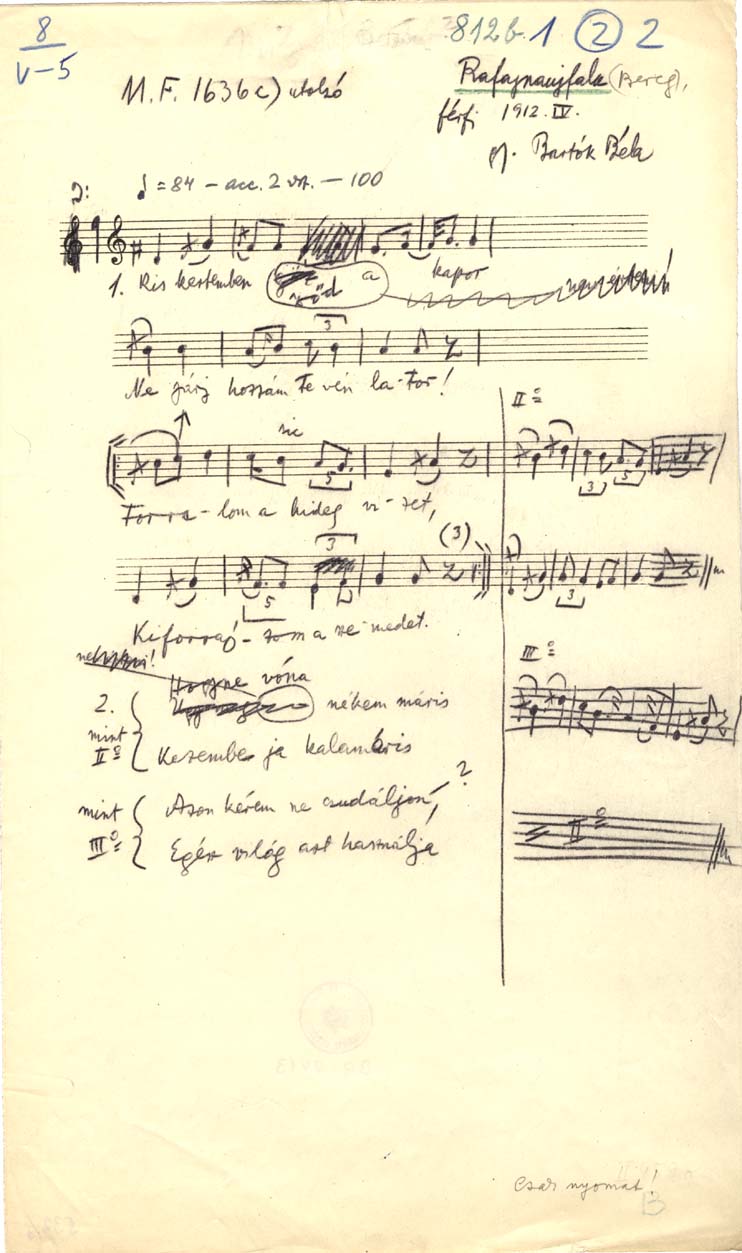 8
V-5
812b. 1 2 2
M.F. 1636c) utolsó
Rafajnaujfalu (Bereg),
férfi 1912. IV.
gy. Bartók Béla
♩=84 – acc. 2 vsz. – 100
1. Kis kertemben zöd a kapor
3
Ne járj hozzám te vén la-tor!
II°
sic
5
3 5
Forra-lom a hideg vi-zet,
3
(3)
5
3
Kiforraó-zom a ne medet.
III°
Hogyne vóna
2. nékem máris
mint
II° Kezembe ja kalamáris
mint Azon kérem ne csudáljon, ?
III° Egész világ azt használja
= II°
Csak nyomat!
B